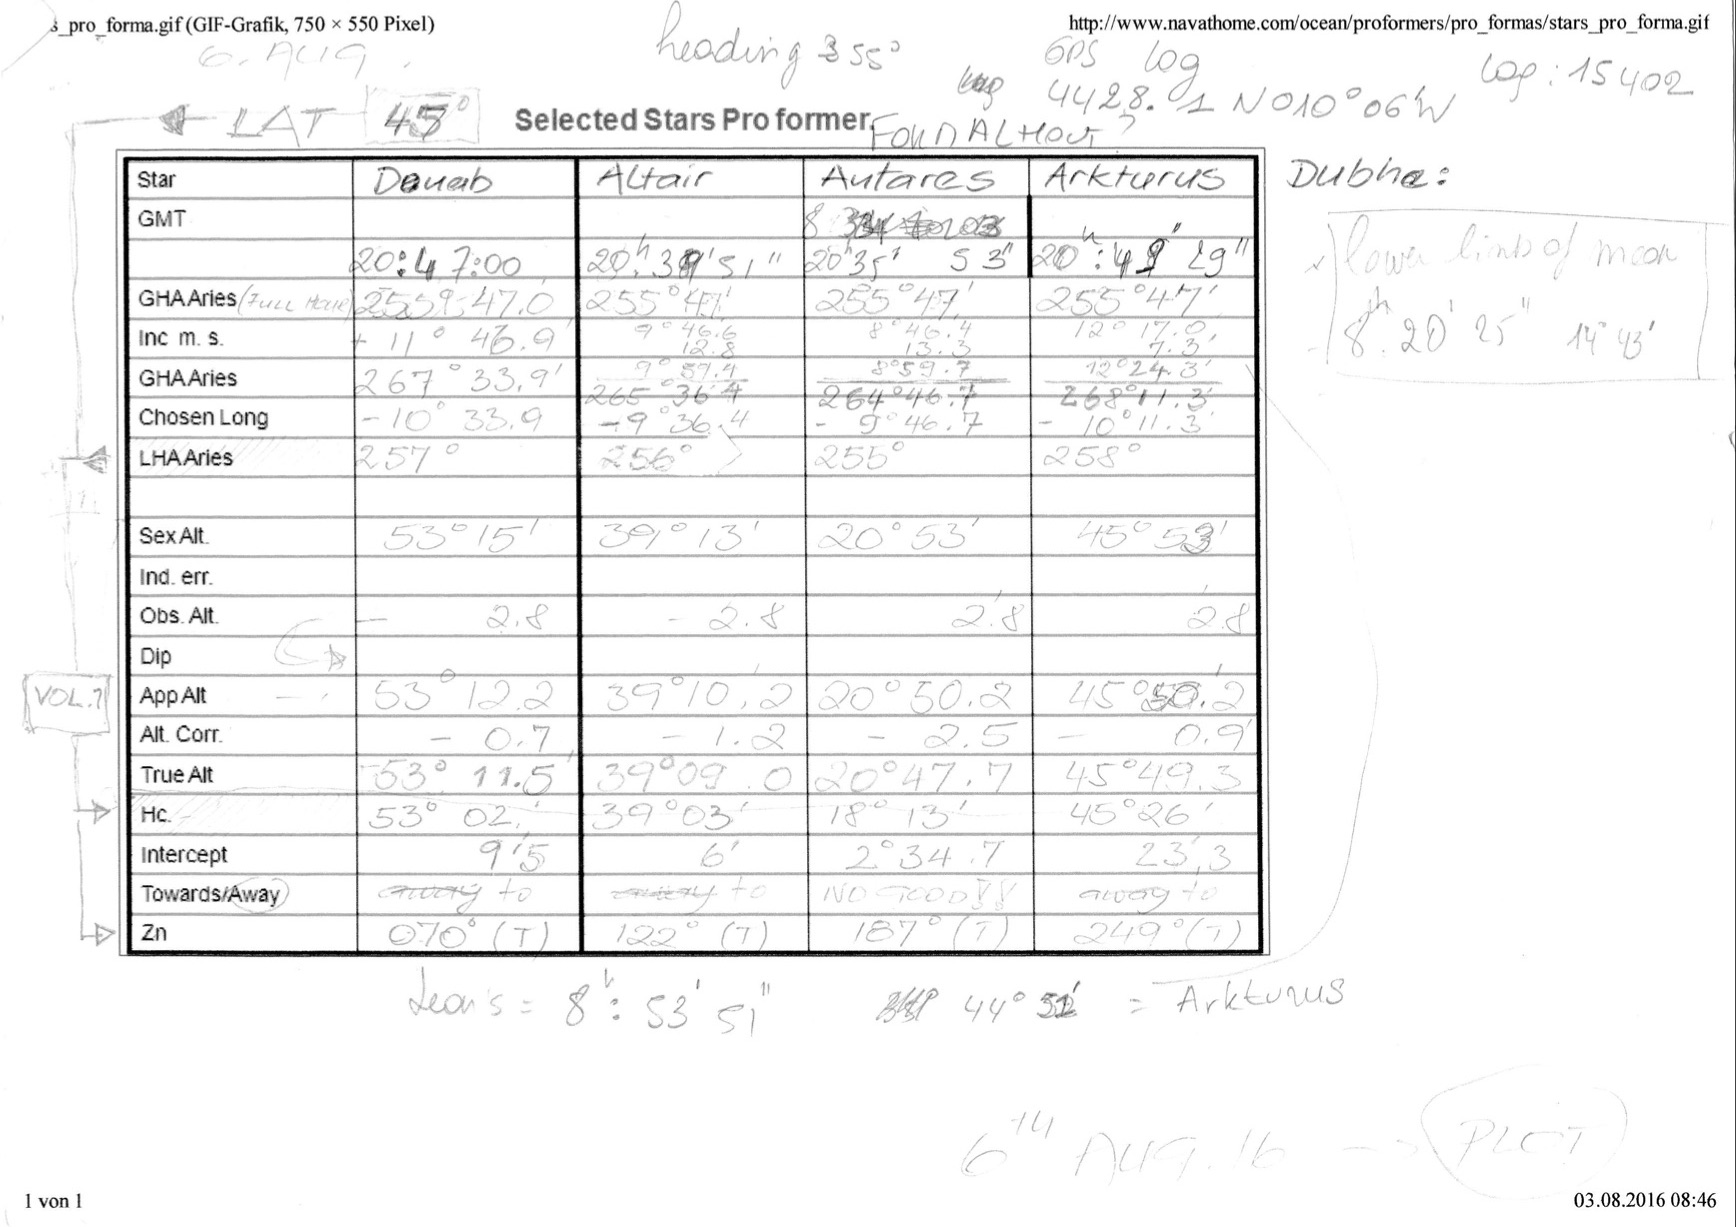 s_pro_forma.gif (GIF-Grafik, 750 × 550 Pixel) http://www.navathome.com/ocean/proformers/pro_formas/stars_pro_forma.gif
6. AUG. heading 355° GPS log Log: 15402
4428.1 N 010°06'W
LAT 45° Selected Stars Pro former FOR DALHOU?
Star Denab Altair Antares Arkturus Dubhe:
GMT 8
20:47:00 20h 39' 51" 20h 35' 53" 20h:49' 29" lower limb of moon
GHA Aries (FULL HOUR) 255° 47.0 255°47' 255°47' 255°47'
Inc m. s. + 11° 46.9' 9° 46.6 8° 46.4 12° 17.0 8h 20' 25" 14° 43'
12.8 13.3 7.3'
GHA Aries 267° 33.9' 9° 59.4 8° 59.7 12° 24.3'
265° 36.4 264° 46.7 268° 11.3'
Chosen Long - 10° 33.9 - 9° 36.4 - 9° 46.7 - 10° 11.3'
LHA Aries 257° 256° 255° 258°
Sex Alt. 53° 15' 39° 13' 20° 53' 45° 53'
Ind. err.
Obs. Alt. - 2.8 - 2.8 2.8 2.8
Dip
VOL.1 App Alt 53° 12.2 39° 10.2 20° 50.2 45° 50.2
Alt. Corr. - 0.7 - 1.2 - 2.5 - 0.9
True Alt 53° 11.5 39° 09.0 20° 47.7 45° 49.3
Hc. 53° 02' 39° 03' 18° 13' 45° 26'
Intercept 9'5 6' 2° 34.7 23'.3
Towards/Away away to away to NO GOOD!! away to
Zn 070° (T) 122° (T) 187° (T) 249° (T)
Leon's = 8h: 53' 51" 44° 52' = Arkturus
6TH AUG. 16 → PLOT
1 von 1 03.08.2016 08:46